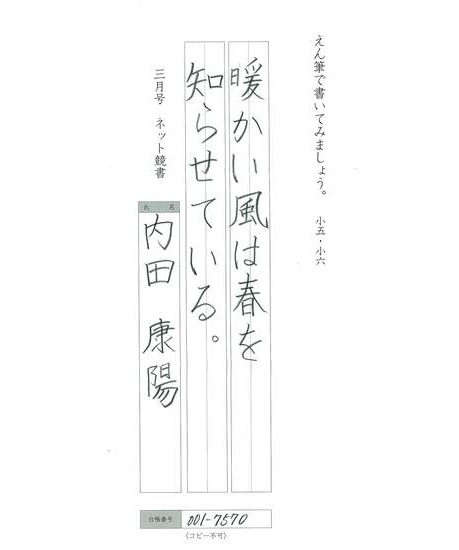 えん筆で書いてみましょう。 小五・小六
暖かい風は春を
知らせている。
三月号 ネット競書
氏名
内田 康陽
台帳番号 001-7570
(コピー不可)